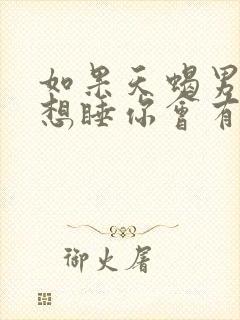 如果天蝎男
想睡你會有
御火屠